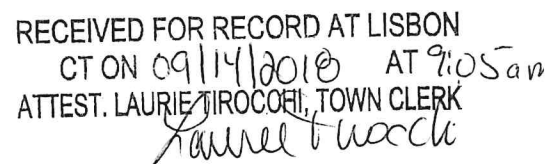 RECEIVED FOR RECORD AT LISBON
CT ON 09/14/2018 AT 9:05am
ATTEST. LAURIE TIROCCHI, TOWN CLERK
Laurie Tirocchi